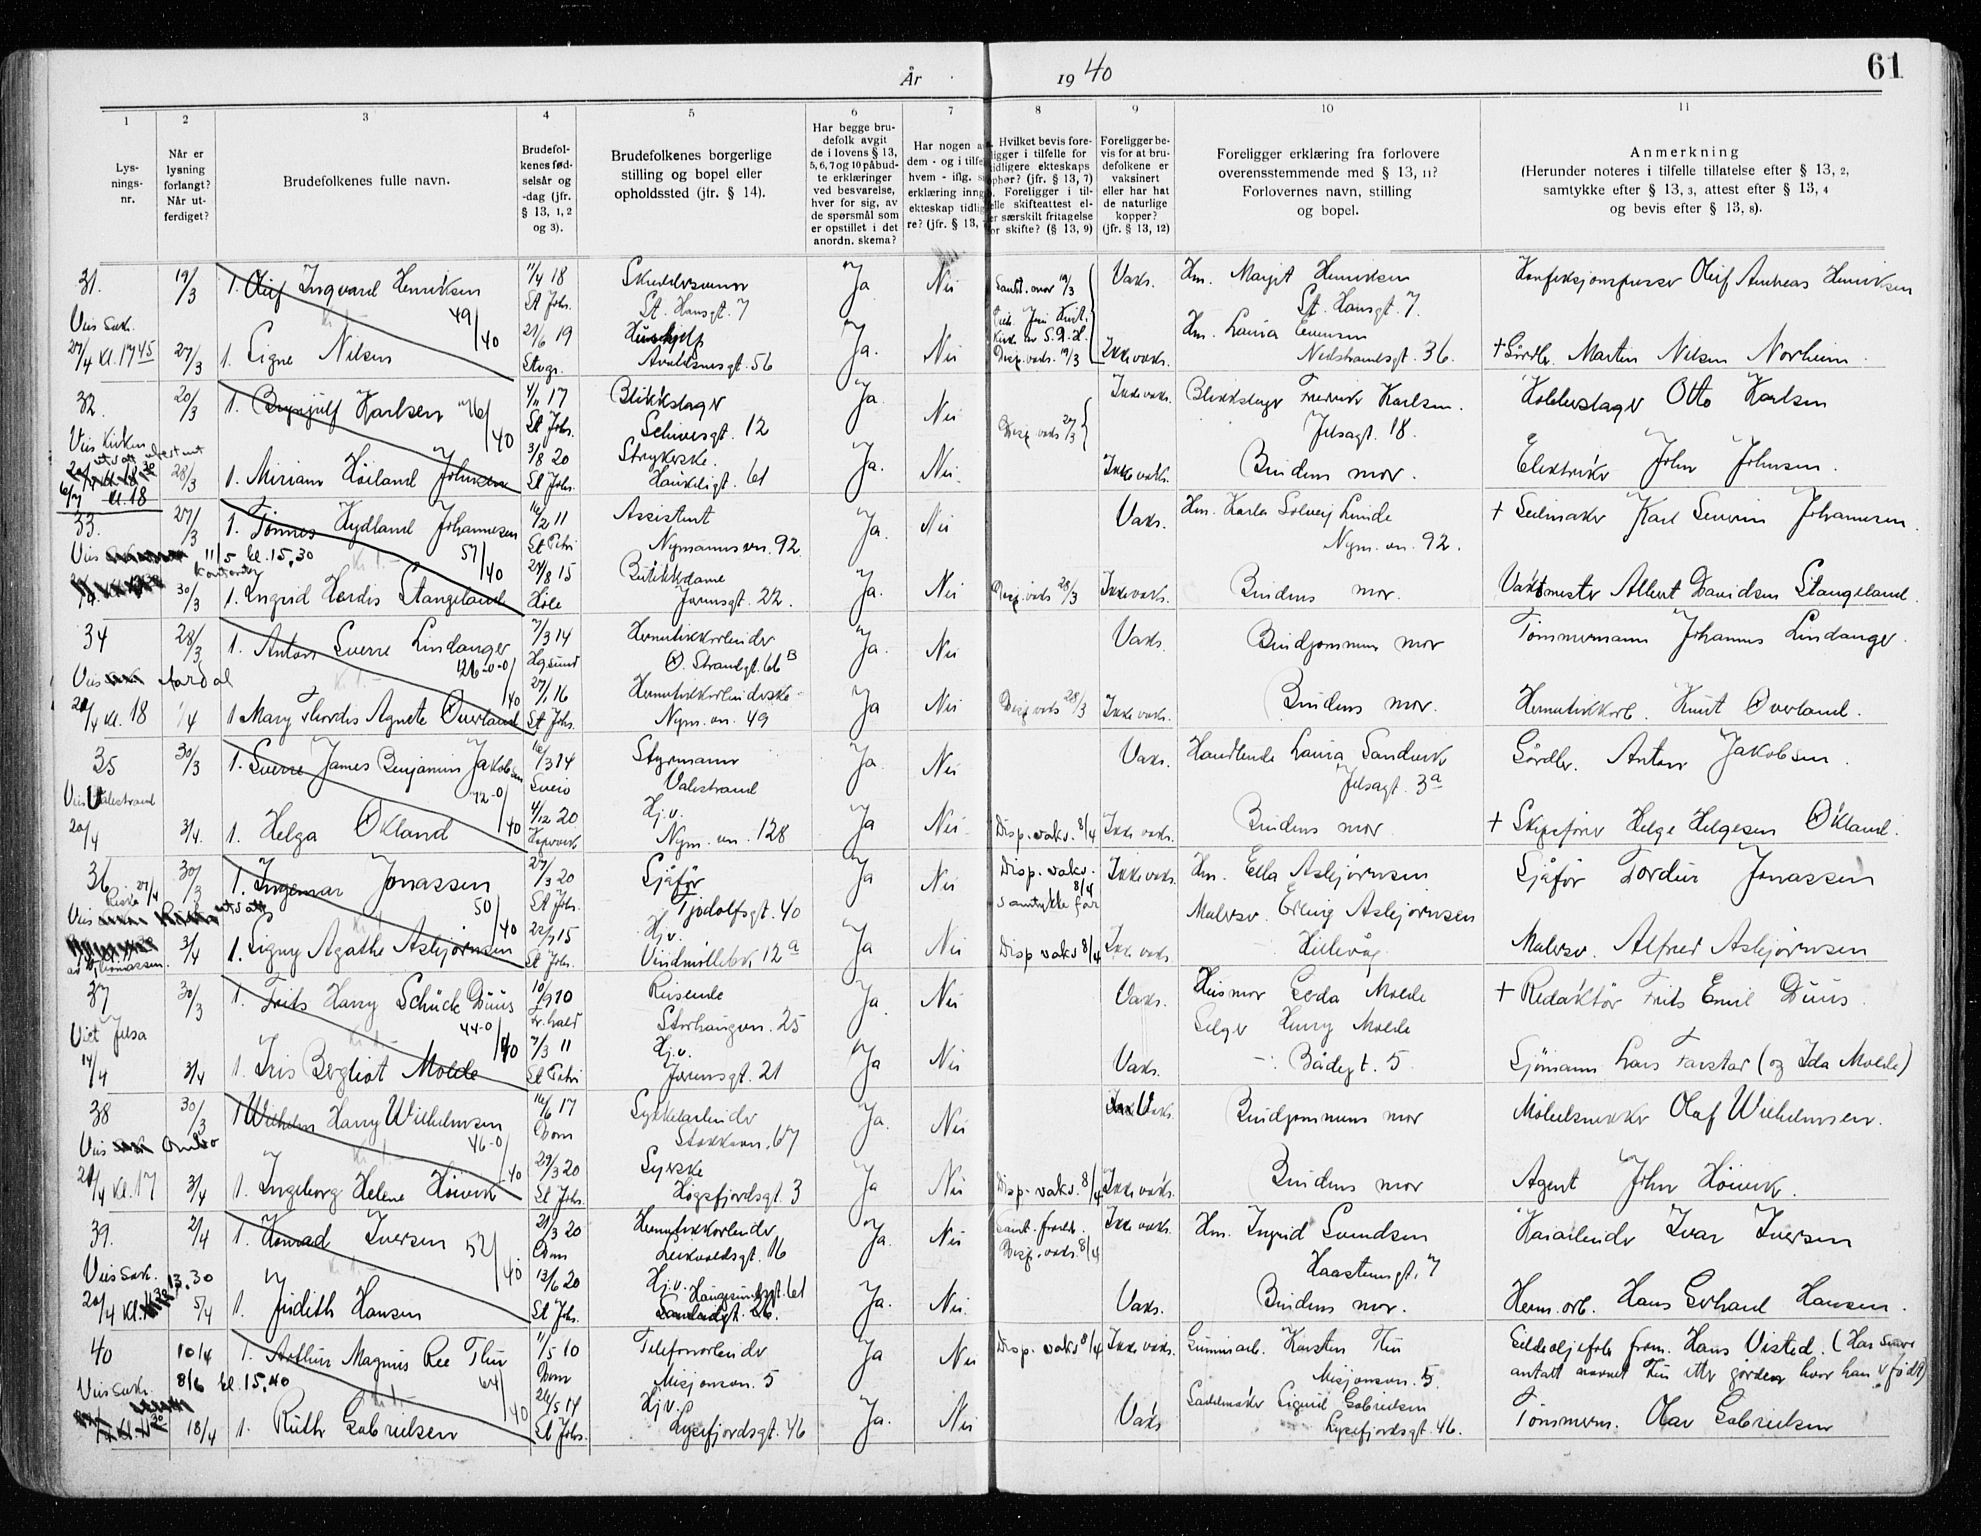 År 1940
61
1 2 3 4 5 6 7 8 9 10 11
Lys-
nings-
nr.
Når er
lysning
forlangt?
Når ut-
ferdiget?
Brudefolkenes fulle navn.
Brudefol-
kenes fød-
selsår og
-dag (jfr.
§ 13, 1, 2
og 3).
Brudefolkenes borgerlige
stilling og bopel eller
opholdssted (jfr. § 14).
Har begge bru-
defolk avgit
de i lovens § 13,
5, 6, 7 og 10 påbud-
te erklæringer
ved besvarelse,
hver for sig, av
de spørsmål som
er opstillet i det
anordn. skema?
Har nogen a
dem - og i tilfel
hvem - iflg. s
erklæring inng
ekteskap tidlig
re? (jfr. § 13,
Hvilket bevis fore-
ligger i tilfelle for
tidligere ekteskaps
ophør? (jfr. § 13, 7)
Foreligger i til-
elle skifteattest el-
er særskilt fritagelse
for skifte? (§ 13, 9)
Foreligger be-
vis for at bru-
defolkene er
vaksinert
eller har hat
de naturlige
kopper?
(jfr. § 13, 12)
Foreligger erklæring fra forlovere
overensstemmende med § 13, 11?
Forlovernes navn, stilling
og bopel.
Anmerkning
(Herunder noteres i tilfelle tillatelse efter § 13, 2,
samtykke efter § 13, 3, attest efter § 13, 4
og bevis efter § 13, 8).
31. 19/3 1. Olaf Ingvard Henriksen 11/4 18 St Johs. St. Hansgt. 7 Ja Nei Vaks. Hm. Margit Henriksen St. Hansgt. 7. Olaf Andreas Henriksen
49/40
Vies Sak. 27/4 Kl. 17 45 27/3 1. Signe Nilsen 21/6 19 Stvgr. Hushjelp Avaldsnesgt. 56 Ja. Nei Disp. vaks. 19/3 Ikke vaks. Hm. Laura Nedstrandsgt. 36. + Gårdbr. Martin Nilsen Norheim.
32. 20/3 1. Brynjulf Karlsen 17 St Johs. Blikkslager Schivesgt. 12 Ja. Nei Disp vaks 27/3 Ikke vaks. Blikkslager Fredrik Karlsen. Jelsagt. 18. Otto Karlsen
46/40
Vies Kirken Kl. 18 28/3 1. Miriam Höiland Johnsen 3/8 20 St Johs. Strykerske. Haukeligt. 61 Ja. Nei. Ikke vaks. Brudens mor. Elektriker John Johnsen.
33. 27/3 1. Tønnes Hydland Johannesen 16/2 11 St Petri Assistent Nymannsvn. 92 Ja. Nei Vaks. Hm. Karla Solveig Lunde Nym. vn. 92. + Seilmaker Karl Severin Johannesen.
57/40
Vies 11/5 kl. 15,30 30/3 1. Ingrid Herdis Stangeland 24/8 15 Höle Butikkdame Jærensgt. 22. Ja. Nei Disp. vaks 28/3 Ikke vaks. Brudens mor. Vaktmester Albert Davidsen Stangeland.
34 28/3 1. Anton Sverre Lindanger 7/3 14 Hgsund Hermetikkarbeider Ø. Strandgt. 66 B Ja. Nei Vaks. Brudgommens mor Tömmermann Johannes Lindanger.
126-0-0/40
Vies Aardal 20/4 Kl. 18 1/4 1 Mary Thordis Agnete Överland 27/1 16 St Johs. Hermetikkarbeiderske Nym. vn. 49 Ja Nei Disp vaks 28/3 Ikke vaks. Brudens mor. Hermetikkarb. Knut Överland.
35 30/3 1. Sverre James Benjamin Jakobsen 16/3 14 Sveio Styrmann Valestrand Ja. Nei Vaks. Handlende Laura Sandvik Jelsagt. 3 a Gårdbr. Anton Jakobsen.
72-0/40
Vies Valestrand 20/4 3/4. 1. Helga Ökland 4/12 20 Kopervik Hj.v. Nym. vn. 128 Ja Nei. Disp. vaks. 8/4 Ikke vaks. Brudens mor + Skipsförer Helge Helgesen Ökland.
36 30/3 1. Ingemar Jonassen 27/3 20 St Johs. Sjåför Tjodolfsgt. 40 Ja Nei Disp. vaks. 8/4 samtykke far Ikke vaks. Hm. Ella Asbjørnsen Sjåför Tordur Jonassen
50/40
3/4 1. Signy Agathe Asbjørnsen 22/7 15 St Johs. Hj.v. Vindmøllebk. 12 a Ja Nei Disp vaks 8/4 Ikke vaks. Malersv. Erling Asbjørnsen Hillevåg. Malersv. Alfred Asbjørnsen
37 30/3 1. Frits Harry Schück Duus 10/9 10 Fr.hald Reisende Storhaugvn. 25 Ja. Nei Vaks. Husmor Gerda Molde + Redaktör Frits Emil Duus.
44-0/40
Viet Jelsa 14/4 3/4 1. Iris Bergliot Molde 7/3 11 St Petri Hj.v. Jærensgt. 21 Ja Nei Vaks. Selger Henry Molde Bådegt. 5 Sjömann Lars Farstar (og Ida Molde)
38 30/3 1 Wilhelm Harry Wilhelmsen 16/6 17 Dom Sykkelarbeider Stokkavn. 67 Ja. Nei Vaks. Brudgommens mor Möbelsnekker Olaf Wilhelmsen.
46-0/40
Vies Ombo 20/4 Kl. 17 3/4 1. Ingeborg Helene Höivik 29/3 20 St Johs. Syerske Högsfjordsgt. 3 Ja Nei Disp. vaks. 8/4 Ikke vaks. Brudens mor Agent John Höivik.
39. 2/4 1. Konrad Iversen 21/3 20 Dom Hermetikkarbeider Leikvollsgt. 16 Ja. Nei Disp. vaks. 8/4 Ikke vaks. Hm. Ingrid Svendsen Haasteinsgt. 7 Kaiarbeider Ivar Iversen
52/40
Vies Sak. 13.30 20/4 5/4 1. Judith Hansen 13/6 20 St Johs. Hj.v. Haugesundsgt. 61 Ja. Nei. Vaks. Brudens mor. Herm. arb. Hans Gerhard Hansen.
40 10/4 1. Arthur Magnus Ree Thu 11/5 10 Dom Telefonarbeider Misjonsvn. 5 Ja Nei Disp. vaks 8/4 Ikke vaks. Gummiarb. Karsten Thu Misjonsvn. 5. Hans Visted. (Har senere antatt navnet Thu etter gården hvor han er født)
64/40
Vies Sak. 8/6 kl. 15,40 18/4 1. Ruth Gabrielsen 26/5 14 St Johs. Hj.v. Lysefjordsgt. 46 Ja. Nei Vaks Salmaker Sigurd Gabrielsen Lysefjordsgt. 46. Tömmerm. Olav Gabrielsen